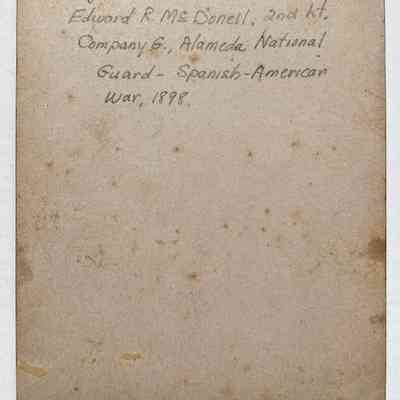 Edward R. McDonell, 2nd Lt.
Company G., Alameda National
Guard - Spanish-American
War, 1898.